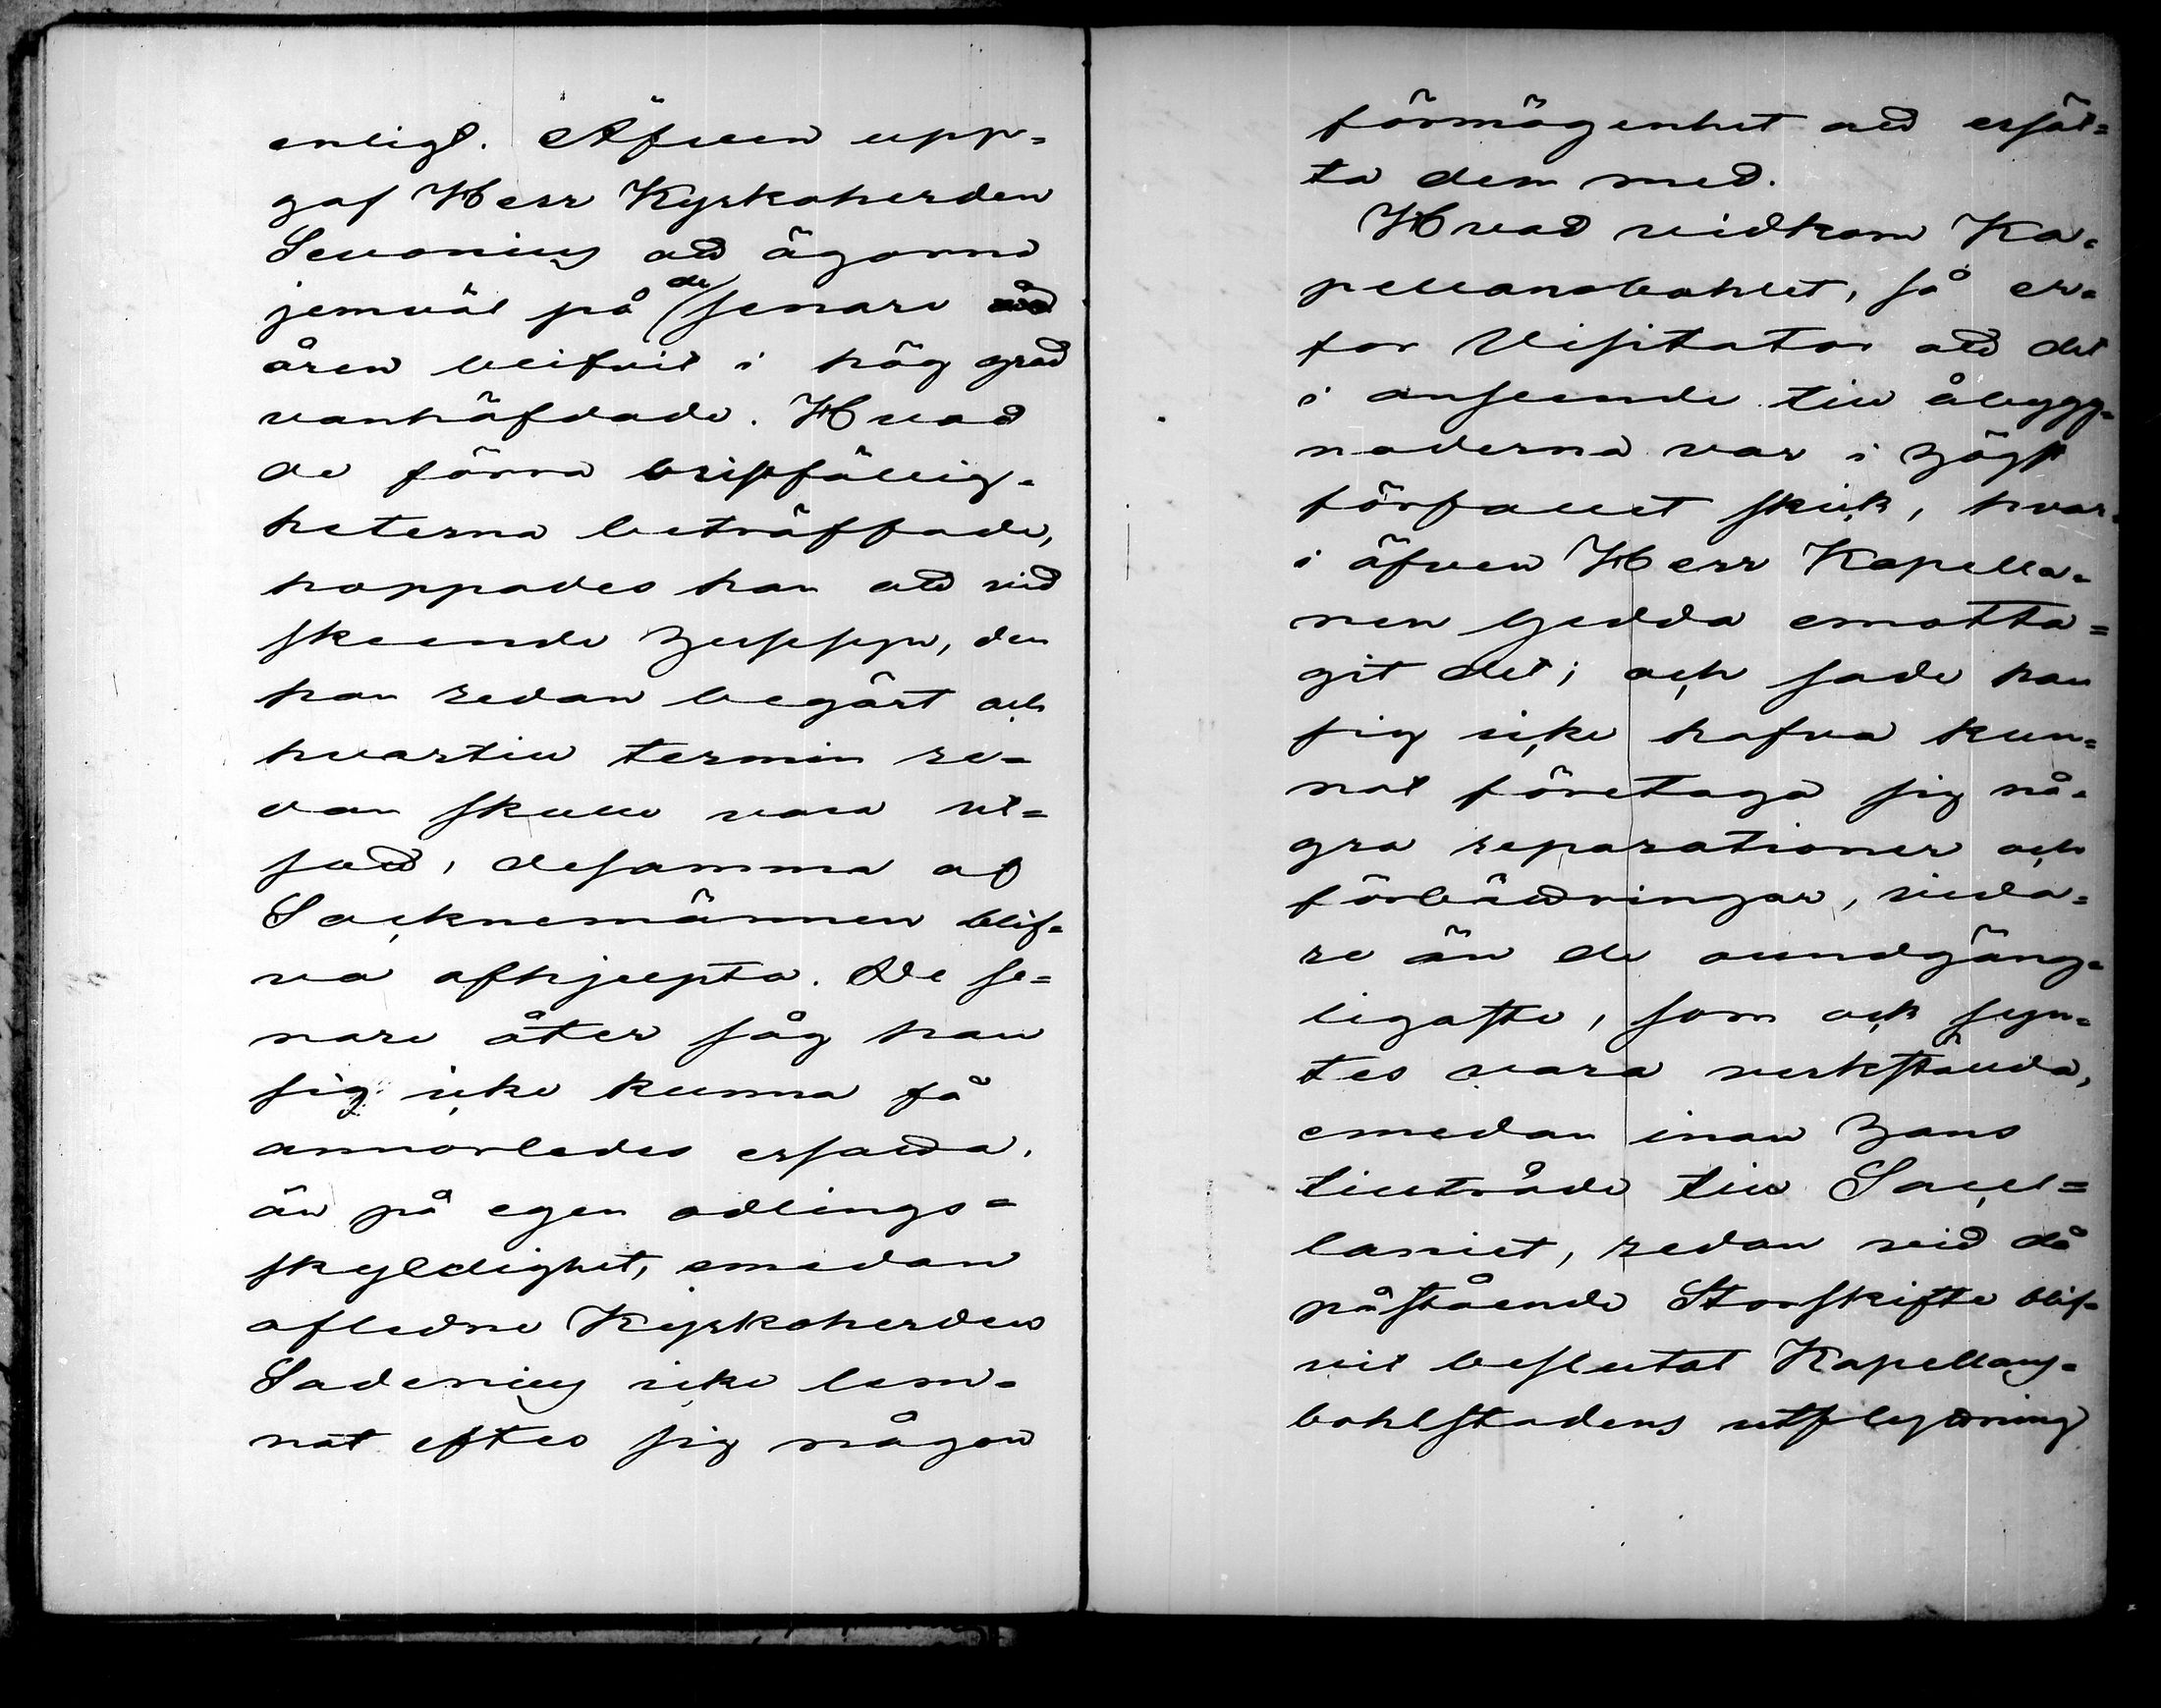 enligt. Äfven upp=
gaf Herr Kyrkoherden
Sevonius att ägorna
jemväl på de senare
åren blifvit i hög grad
vanhäfdade. Hvad
de förra bristfällig=
heterna beträffade,
hoppades han att vid
skeende Husesyn, den
han redan begärt och
hvartill termin re=
dan skulle vara ut=
satt, desamma af
Socknemännen blif=
va afhjelpta. De se=
nare åter såg han
sig icke kunna få
annorledes ersatta,
än på egen odlings=
skyldighet, emedan
aflidne Kyrkoherden
Sadenius icke lem=
nat efter sig någon
förmögenhet att ersät=
ta dem med.
Hvad vidkom Ka=
pellansbohlet, så er=
for Visitator att det
i anseende till åbygg=
naderna var i högst
förfallet skick, hvar=
i äfven Herr Kapella=
nen Gedda emotta=
git det; och sade han
sig icke hafva kun=
nat företaga sig nå=
gra reparationer och
förbättringar, vida=
re än de oundgäng=
ligaste, som ock syn=
tes vara verkställda,
emedan innan Hans
tillträde till Sacel=
laniet, redan vid då
påstående Storskifte blif=
vit beslutat Kapellans=
bohlstadens utflyttning